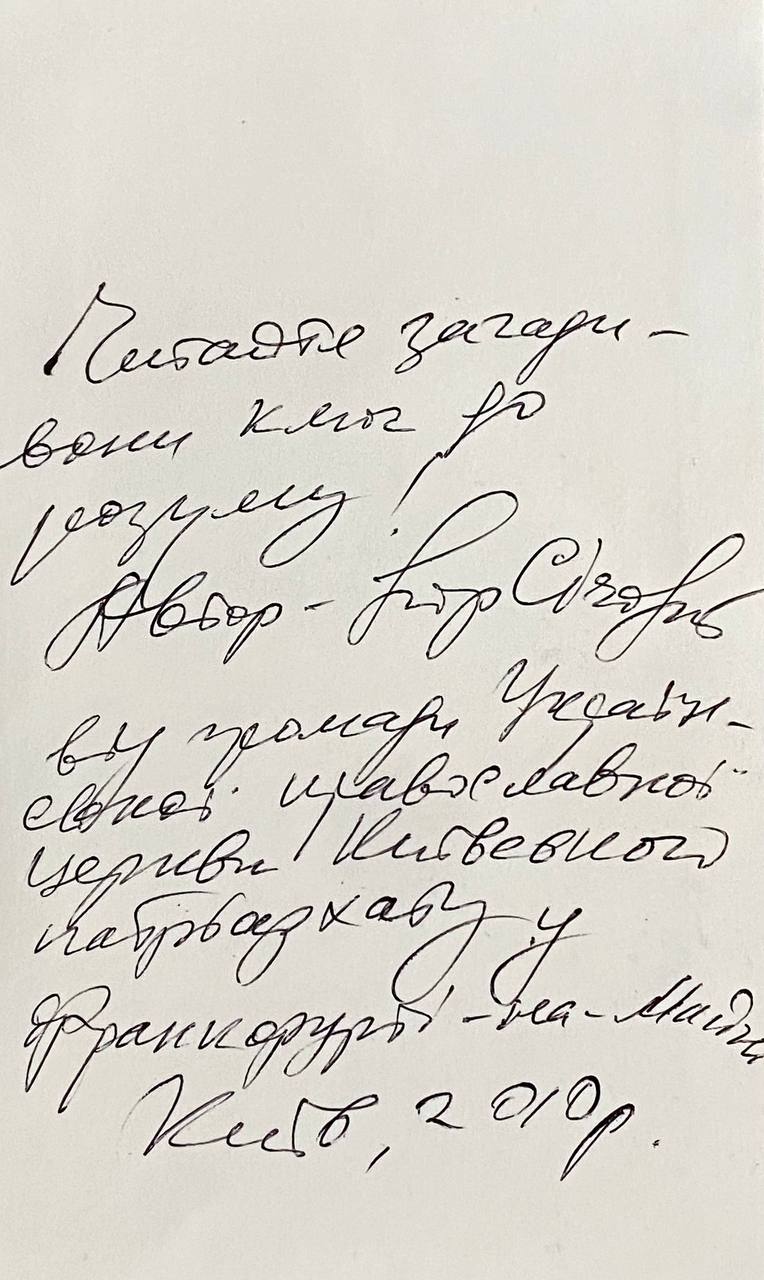 Читайте загади -
вони ключ до
розуму!
Автор - Ігор Січовик
від громади Україн-
ської православної
церкви Київського
патріархату у
Франкфурті-на-Майні
Київ, 2010р.